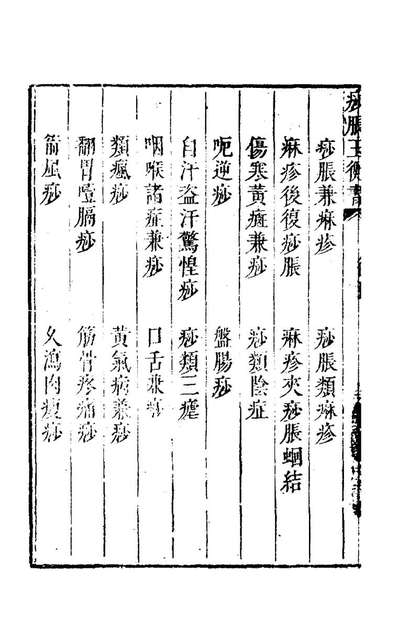 痧脹玉衡書
痧脹兼麻疹
痧脹類麻疹
麻疹後復痧脹
麻疹夾痧脹蛔結
傷寒黃疸兼痧
痧類陰症
呃逆痧
盤腸痧
自汗盜汗驚惶痧
痧類三瘧
咽喉諸症兼痧
口舌兼痧
類瘋痧
黃氣病兼痧
翻胃噎膈痧
筋骨疼痛痧
箭風痧
久瀉肉瘦痧